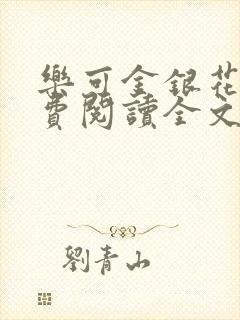 樂可金銀花
費閱讀全文
劉青山